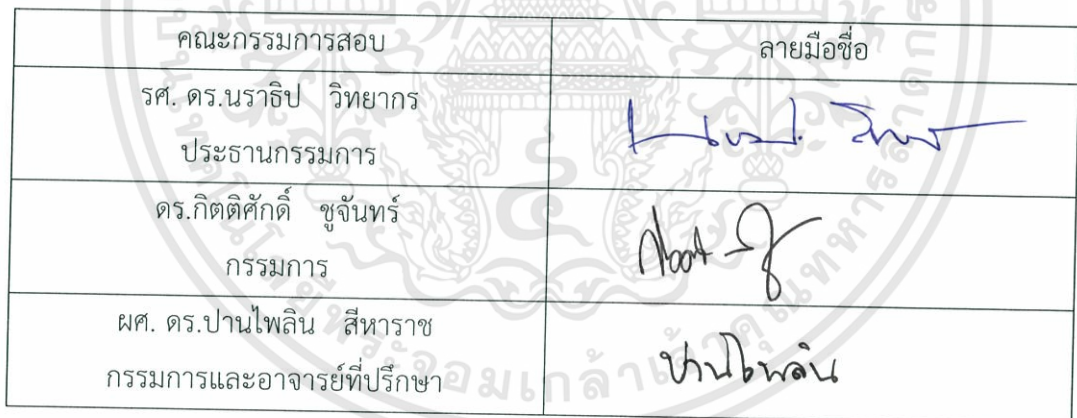 คณะกรรมการสอบ ลายมือชื่อ
รศ. ดร.นราธิป วิทยากร
ประธานกรรมการ
ดร.กิตติศักดิ์ ชูจันทร์
กรรมการ
ผศ. ดร.ปานไพลิน สีหาราช
กรรมการและอาจารย์ที่ปรึกษา
ปานไพลิน